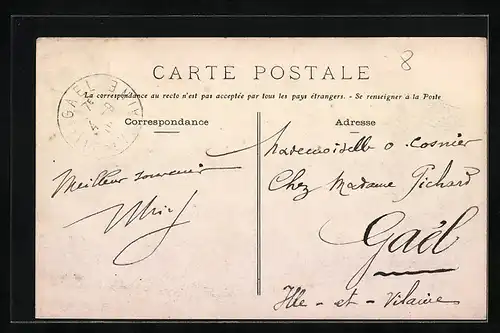 8
CARTE POSTALE
La correspondance au recto n'est pas acceptée par tous les pays étrangers. - Se renseigner à la Poste
GAEL
ILLE
Correspondance
Adresse
Meilleur souvenir
Mademoiselle O. Cosnier
Chez Madame Pichard
Gaël
Ille-et-Vilaine